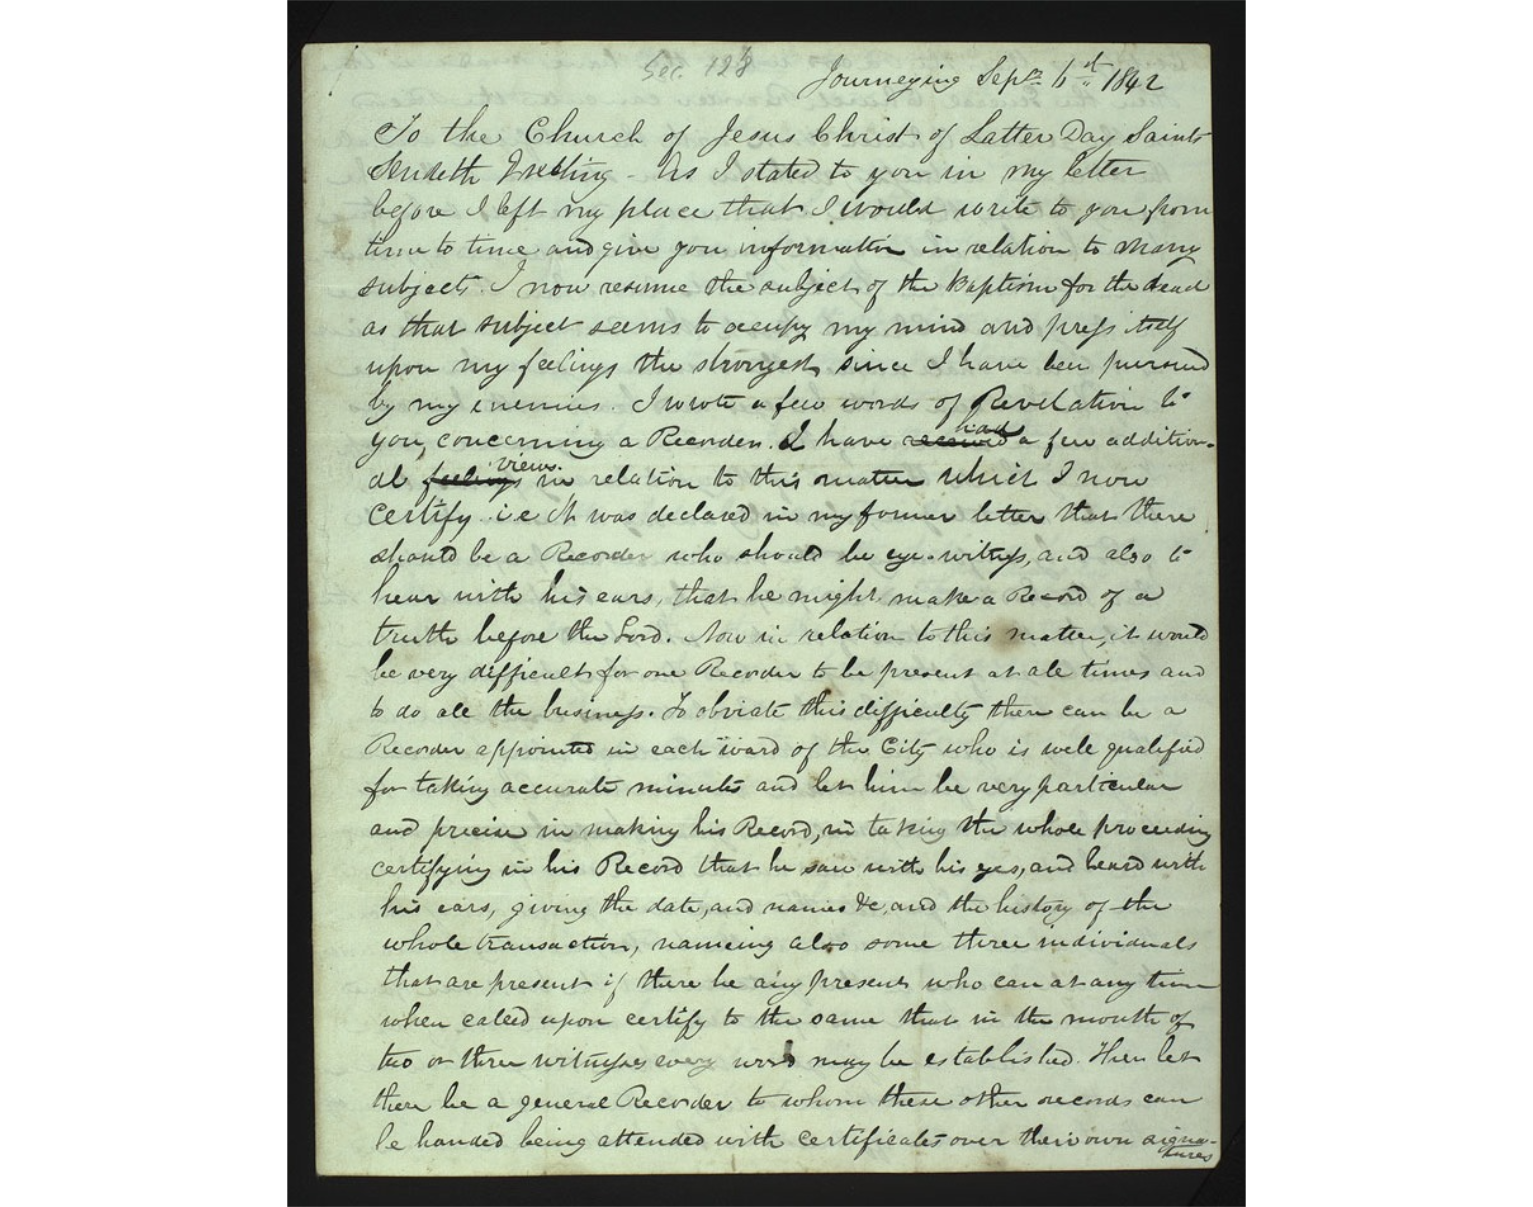 Sec. 128
Journeying Sepr. 6st 1842
To the Church of Jesus Christ of Latter Day Saints
Sendeth Greeting - As I stated to you in my letter
before I left my place that I would write to you from
time to time and give you information in relation to many
subjects. I now resume the subject of the baptism for the dead
as that subject seems to occupy my mind and press itself
upon my feelings the strongest, since I have been pursued
by my enemies. I wrote a few words of Revelation to
you, concerning a Recorder. I have received had a few addition-
al feelings views in relation to this matter which I now
certify. i.e It was declared in my former letter that there
should be a Recorder who should be eye-witness, and also to
hear with his ears, that he might make a Record of a
truth before the Lord. Now in relation to this matter, it would
be very difficult for one Recorder to be present at all times and
to do all the business. To obviate this difficulty there can be a
Recorder appointed in each ward of the City who is well qualified
for taking accurate minutes and let him be very particular
and precise in making his Record, in taking the whole proceeding
certifying in his Record that he saw with his eyes, and heard with
his ears, giving the date, and names &c, and the history of the
whole transaction, nameing also some three individuals
that are present if there be any present who can at any time
when called upon certify to the same that in the mouth of
two or three witnesses every word may be established. Then let
there be a general Recorder to whom these other records can
be handed being attended with certificates over their own signa-
tures